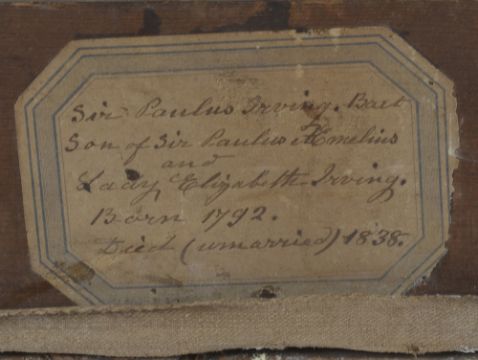 Sir Paulus Irving. Bart
Son of Sir Paulus Æmelius
and
Lady Elizabeth Irving.
Born 1792.
Died (unmarried) 1838.